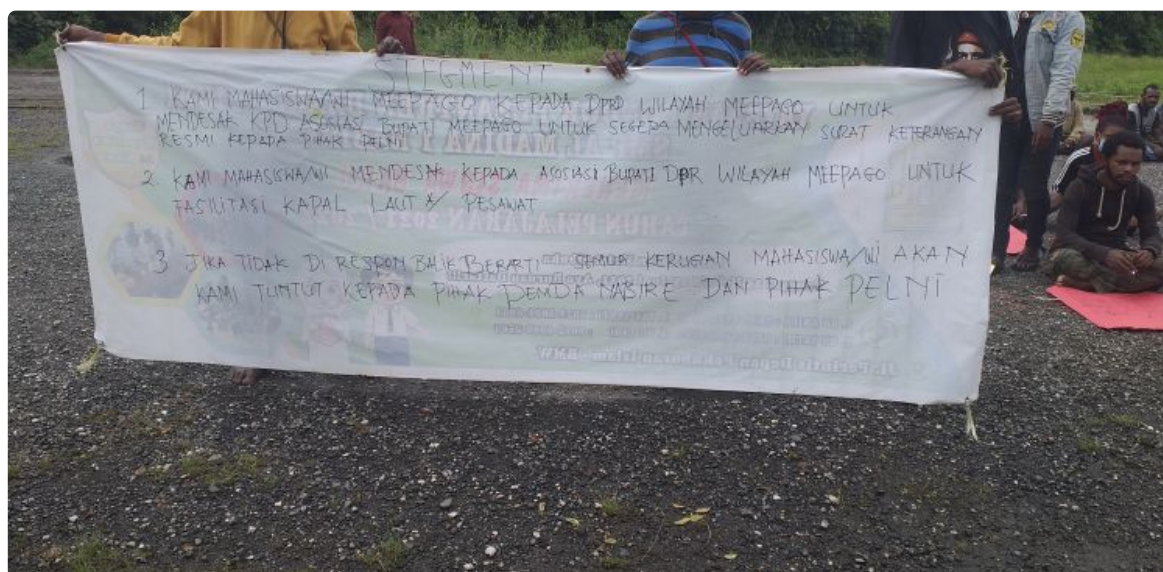 STEGMENT
1. KAMI MAHASISWA/WI MEEPAGO KEPADA DPRD WILAYAH MEEPAGO UNTUK
MENDESAK KPD ASOSIASI BUPATI MEEPAGO UNTUK SEGERA MENGELUARKAN SURAT KETERANGAN
RESMI KEPADA PIHAK PELNI
2. KAMI MAHASISWA/WI MENDESAK KEPADA ASOSIASI BUPATI DPR WILAYAH MEEPAGO UNTUK
FASILITASI KAPAL LAUT & PESAWAT
3 JIKA TIDAK DI RESPON BALIK BERARTI SEMUA KERUGIAN MAHASISWA/WI AKAN
KAMI TUNTUT KEPADA PIHAK PEMDA NABIRE DAN PIHAK PELNI
TAHUN PELAJARAN